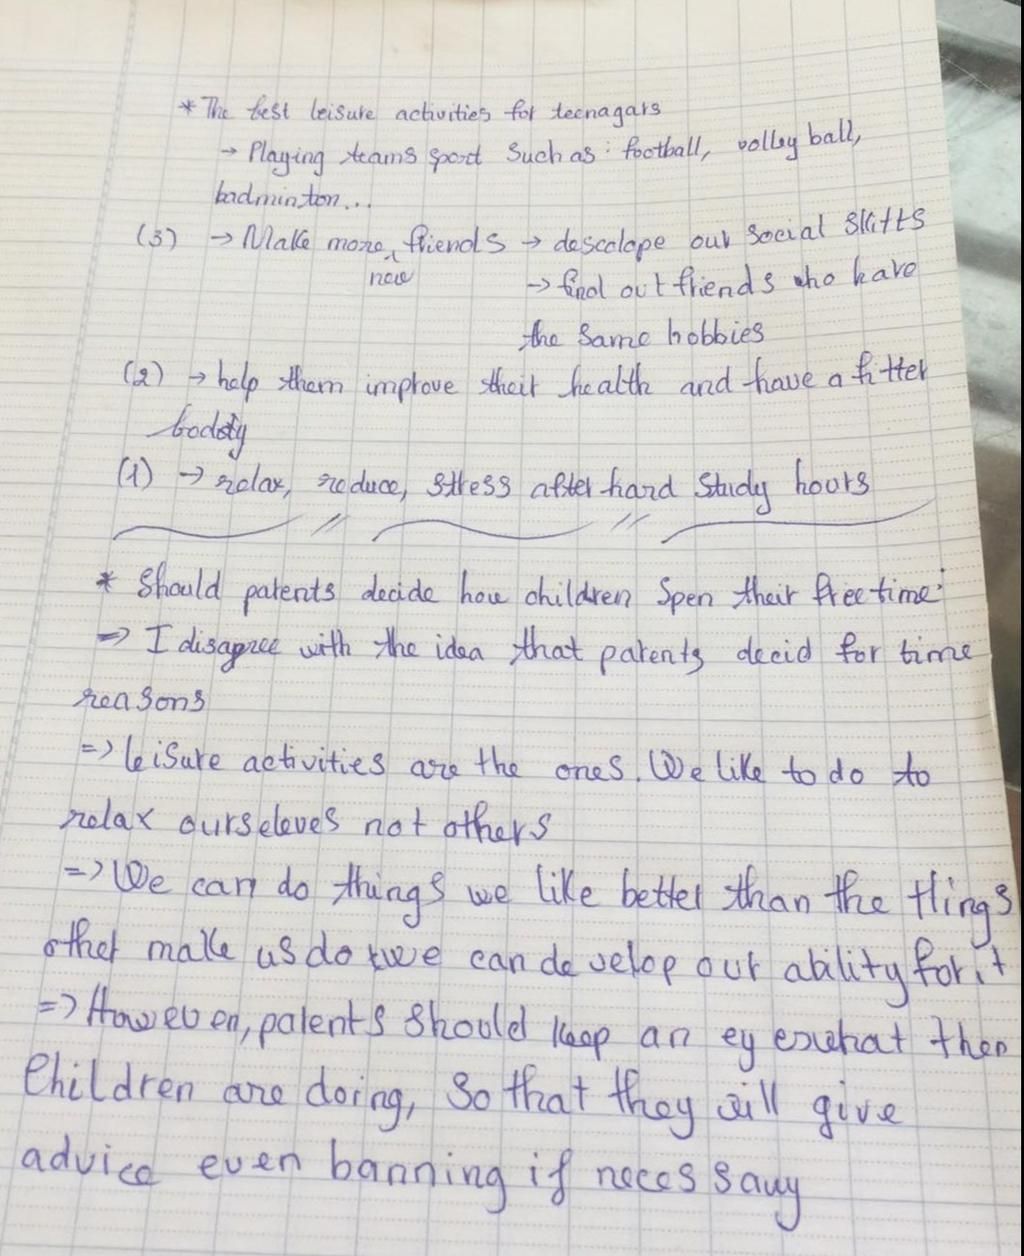 * The best leisure activities for teenagars
→ Playing teams sport such as: football, volley ball,
badminton...
(3) → Make more friends → descolope our social skitts
new → find out friends who have
the same hobbies
(2) → help them improve their health and have a fitter
bodoty
(1) → relax, reduce, stress after hard study hours
* Should parents decide how children spen their free time?
=> I disagree with the idea that parents decid for time
reasons
=> leisure activities are the ones. We like to do to
relax ourseleves not others
=> We can do things we like better than the things
other make us do we can develop our ability for it
=> However, parents should keep an ey
Children are doing, so that they will give
advice even banning if necessary